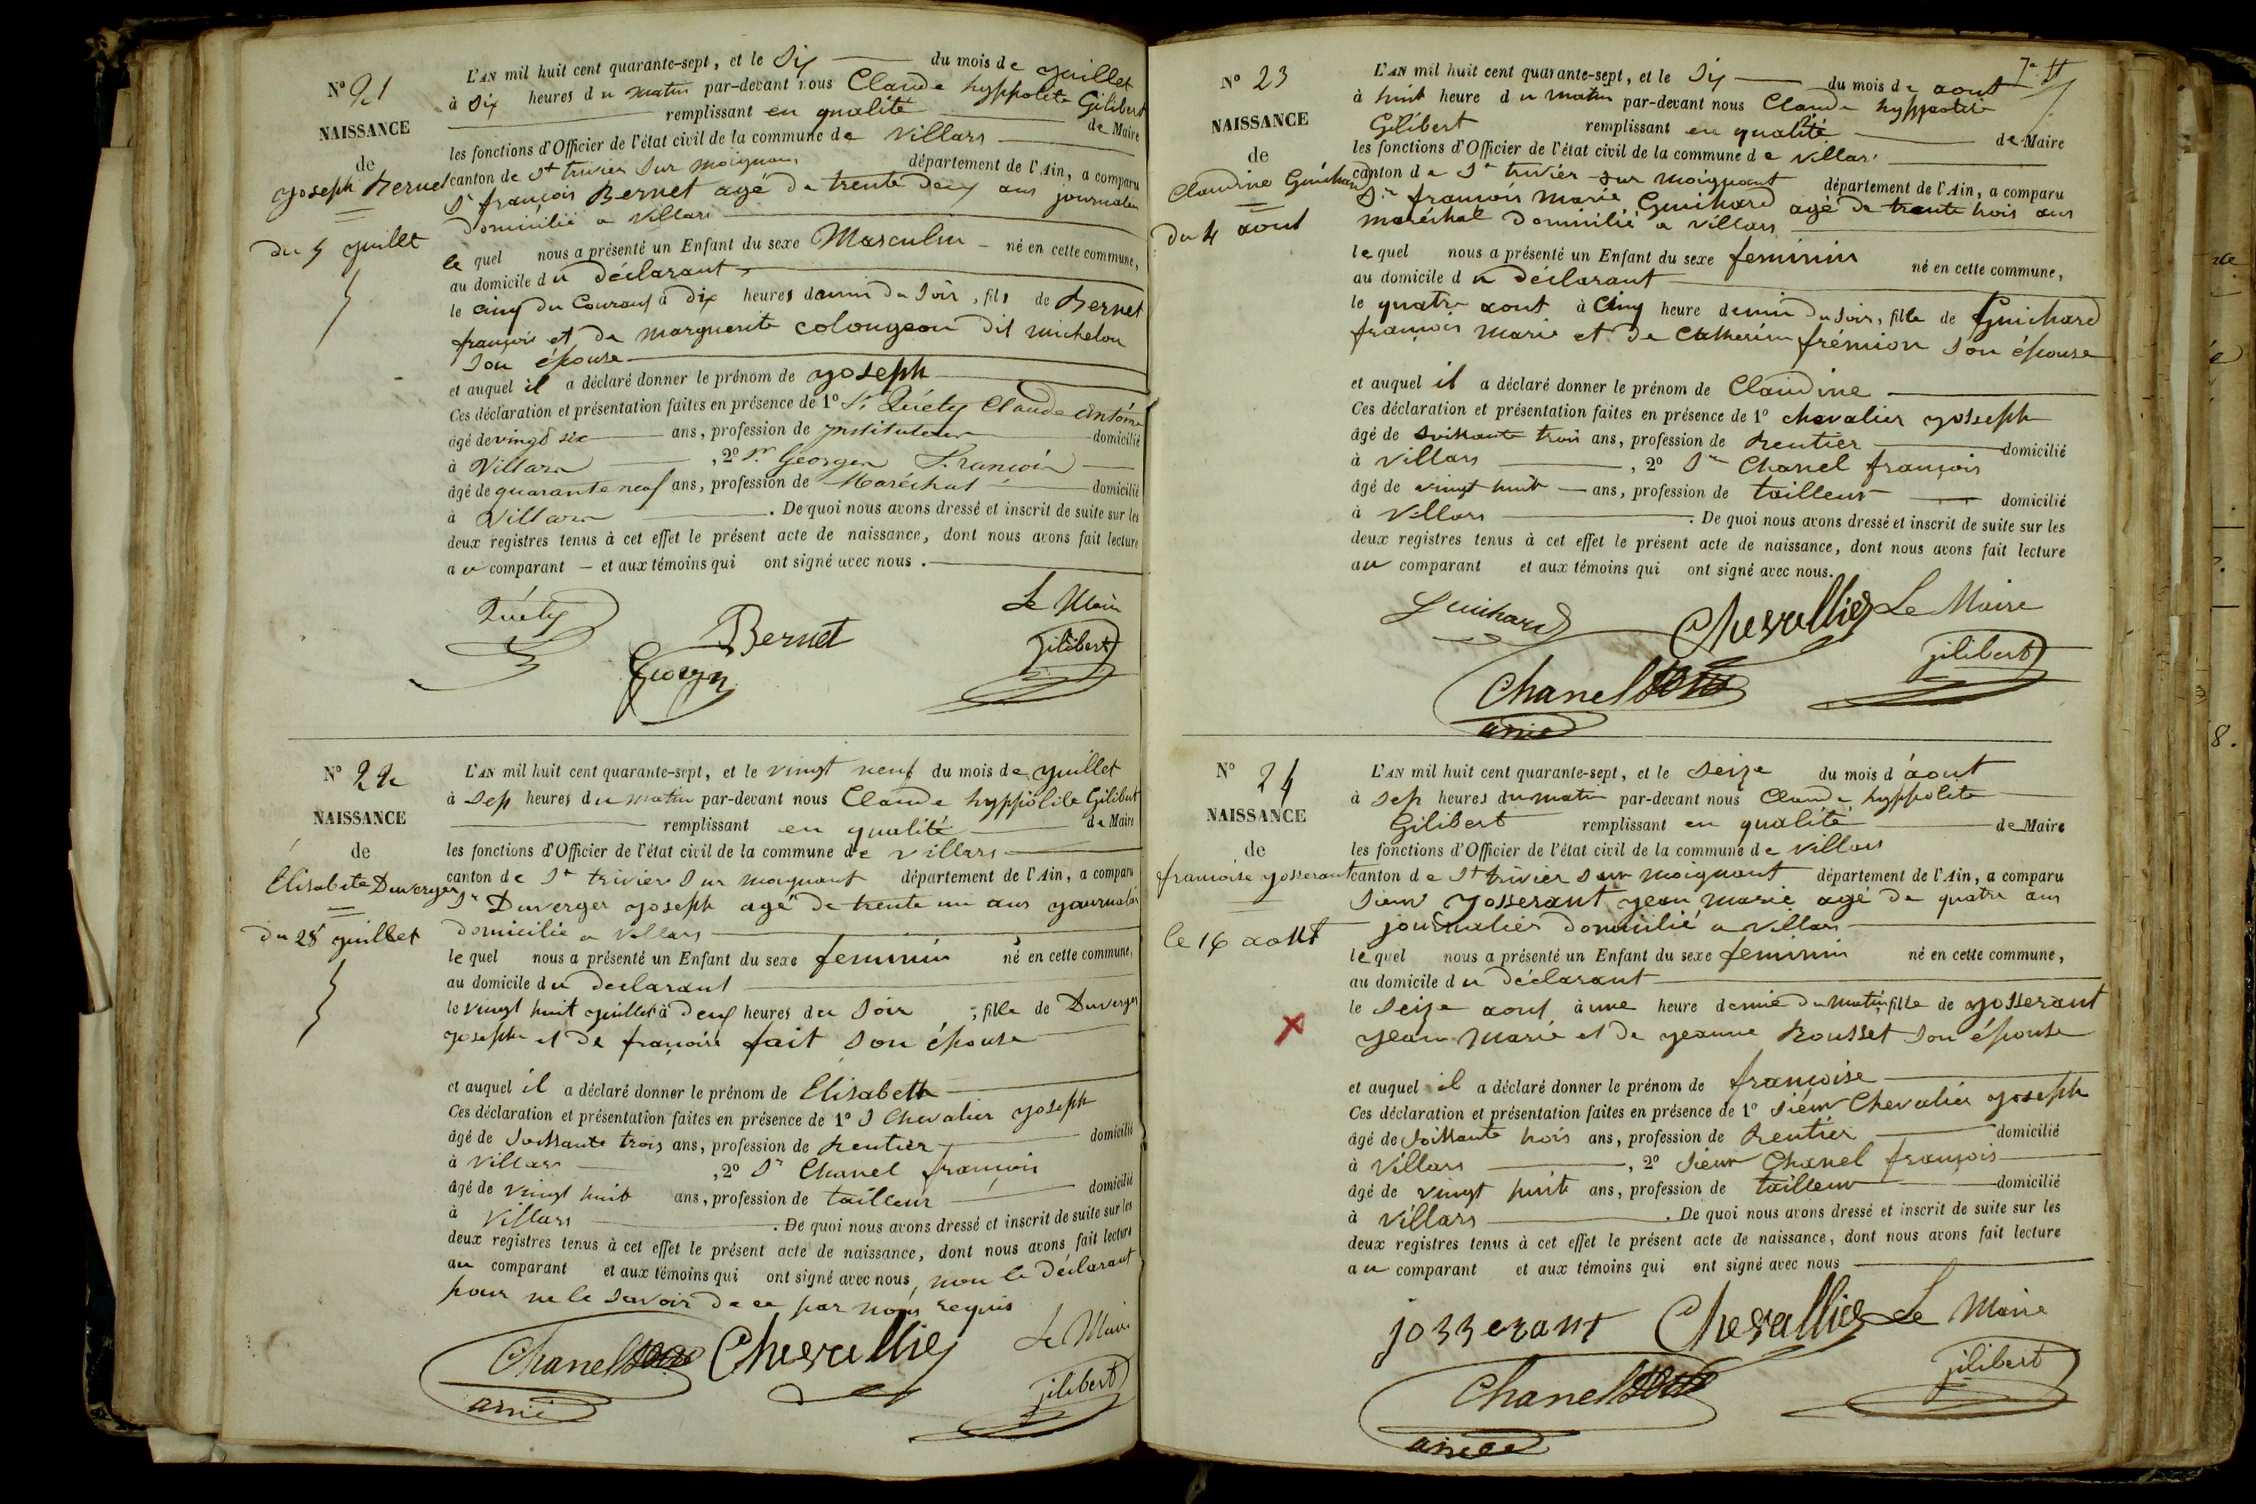 N° 21
NAISSANCE
de
Joseph Bernet
du 5 juillet
L'AN mil huit cent quarante-sept, et le six du mois de juillet
à six heures du matin par-devant nous Claude hyppolite Gilibert
remplissant en qualité de Maire
les fonctions d'Officier de l'état civil de la commune de Villars
canton de St trivier sur moignans département de l'Ain, a comparu
Sr françois Bernet agé de trente deux ans journalier
domicilié a Villars
lequel nous a présenté un Enfant du sexe Masculin né en cette commune,
au domicile du déclarant
le cinq du Courant à dix heures demi du Soir, fils de Bernet
françois et de marguerite colongeon dit michelon
son épouse
et auquel il a déclaré donner le prénom de Joseph
Ces déclaration et présentation faites en présence de 1° Sr Quéty Claude Antoine
âgé de vingt six ans, profession de instituteur domicilié
à Villars , 2° Sr Georges François
âgé de quarante neuf ans, profession de Maréchal domicilié
à Villars . De quoi nous avons dressé et inscrit de suite sur les
deux registres tenus à cet effet le présent acte de naissance, dont nous avons fait lecture
au comparant et aux témoins qui ont signé avec nous.
Quéty
Bernet
Le Maire
Georges
Gilibert
N° 22
NAISSANCE
de
Elisabete Duverger
du 28 juillet
L'AN mil huit cent quarante-sept, et le vingt neuf du mois de juillet
à sep heures du matin par-devant nous Claude hyppolite Gilibert
remplissant en qualité de Maire
les fonctions d'Officier de l'état civil de la commune de villars
canton de St trivier sur moignant département de l'Ain, a comparu
Sr Duverger joseph agé de trente un ans journalier
domicilié a Villars
lequel nous a présenté un Enfant du sexe feminin né en cette commune,
au domicile du déclarant
le vingt huit juillet à deux heures du Soir , fille de Duverger
joseph et de françoise fait son épouse
et auquel il a déclaré donner le prénom de Elisabeth
Ces déclaration et présentation faites en présence de 1° S Chevalier joseph
âgé de soissante trois ans, profession de Rentier domicilié
à Villars , 2° Sr Chanel françois
âgé de vingt huit ans, profession de tailleur domicilié
à Villars . De quoi nous avons dressé et inscrit de suite sur les
deux registres tenus à cet effet le présent acte de naissance, dont nous avons fait lecture
au comparant et aux témoins qui ont signé avec nous, non le déclarant
pour ne le savoir de ce par nous requis
Chanel
Chevallier
Le Maire
Gilibert
7e
N° 23
NAISSANCE
de
Claudine Guichard
du 4 aout
L'AN mil huit cent quarante-sept, et le six du mois de aout
à huit heure du matin par-devant nous Claude hyppolite
Gilibert remplissant en qualité de Maire
les fonctions d'Officier de l'état civil de la commune de villars
canton de St trivier sur moignant département de l'Ain, a comparu
Sr françois marie Guichard agé de trente trois ans
maréchal domicilié a villars
lequel nous a présenté un Enfant du sexe feminin né en cette commune,
au domicile du déclarant
le quatre aout à cinq heure demie du soir, fille de Guichard
françois marie et de Catherine frémion son épouse
et auquel il a déclaré donner le prénom de Claudine
Ces déclaration et présentation faites en présence de 1° chevalier josseph
âgé de soissante trois ans, profession de Rentier domicilié
à Villars , 2° Sr Chanel françois
âgé de vingt huit ans, profession de tailleur domicilié
à Villars . De quoi nous avons dressé et inscrit de suite sur les
deux registres tenus à cet effet le présent acte de naissance, dont nous avons fait lecture
au comparant et aux témoins qui ont signé avec nous.
Guichard
Chevallier
Le Maire
Chanel
Gilibert
N° 24
NAISSANCE
de
francoise Josserant
le 16 aout
L'AN mil huit cent quarante-sept, et le seize du mois d'aout
à sep heures du matin par-devant nous Claude hyppolite
Gilibert remplissant en qualité de Maire
les fonctions d'Officier de l'état civil de la commune de Villars
canton de St trivier sur moignant département de l'Ain, a comparu
Sieur Josserant jean marie agé de quatre ans
journalier domicilié a villars
lequel nous a présenté un Enfant du sexe feminin né en cette commune,
au domicile du déclarant
le seize aout à une heure demie du matin, fille de Josserant
jean marie et de jeanne Rousset son épouse
et auquel il a déclaré donner le prénom de françoise
Ces déclaration et présentation faites en présence de 1° Sieur Chevalier joseph
âgé de soissante trois ans, profession de Rentier domicilié
à Villars , 2° sieur Chanel françois
âgé de vingt huit ans, profession de tailleur domicilié
à Villars . De quoi nous avons dressé et inscrit de suite sur les
deux registres tenus à cet effet le présent acte de naissance, dont nous avons fait lecture
au comparant et aux témoins qui ont signé avec nous
jozzerant
Chevallier
Le Maire
Chanel
Gilibert